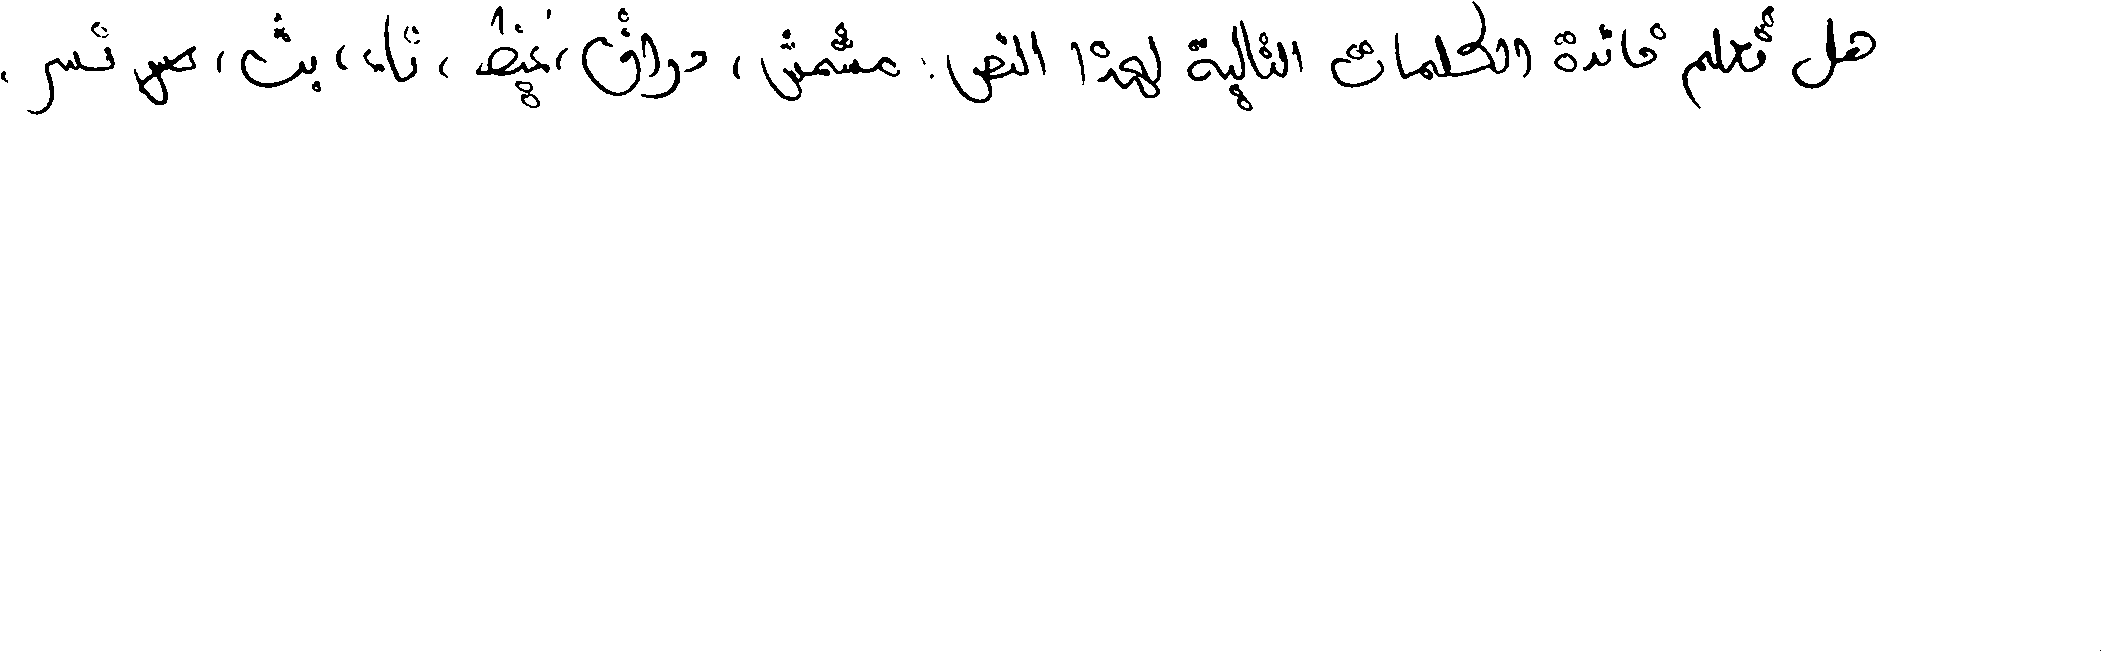 هل تعلم فائدة الكلمات التالية لهذا النص: مشمش، دراق، تاء، بث، نسر.